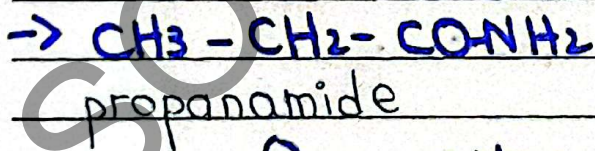 -> CH3 - CH2 - CO-NH2
propanamide